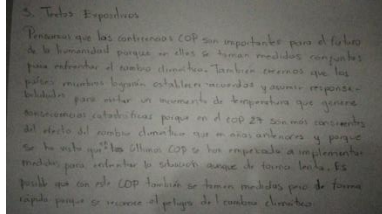 3. Textos Expositivos
Pensamos que las conferencias COP son importantes para el futuro
de la humanidad porque en ellas se toman medidas conjuntas
para enfrentar el cambio climático. También creemos que los
países miembros lograrán establecer acuerdos y asumir responsa-
bilidades para evitar un incremento de temperatura que genere
consecuencias catastróficas porque en el COP 27 son mas conscientes
del efecto del cambio climático que en años anteriores y porque
se ha visto que las últimas COP se han empezado a implementar
medidas para enfrentar la situación aunque de forma lenta. Es
posible que con este COP también se tomen medidas pero de forma
rápida porque se reconoce el peligro del cambio climático.